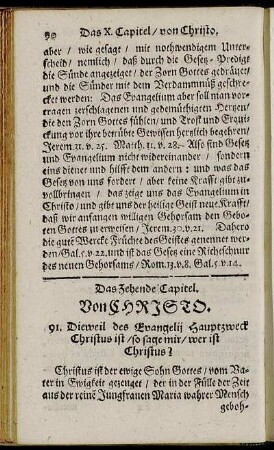 90 Das X. Capitel / von Christo.
aber / wie gesagt / mit nothwendigem Unter-
scheid / nemlich / daß durch die Gesetz-Predigt
die Sünde angezeiget / der Zorn Gottes gedräuet /
und die Sünder mit dem Verdammnüß geschre-
cket werden: Das Evangelium aber soll man vor-
tragen zerschlagenen und gedemüthigten Hertzen /
die den Zorn Gottes fühlen / und Trost und Erquic-
kung vor ihre betrübte Gewissen hertzlich begehren /
Jerem. 31. v. 25. Matth. 11. v. 28. Also sind Gesetz
und Evangelium nicht widereinander / sondern
eins dienet und hilfft dem andern: und was das
Gesetz von uns fordert / aber keine Krafft gibt zu-
vollbringen / das zeiget uns das Evangelium in
Christo / und gibt uns der heilige Geist neue Krafft /
daß wir anfangen willigen Gehorsam den Gebo-
ten Gottes zu erweisen / Jerem. 30. v. 21. Dahero
die gute Wercke Früchte des Geistes genennet wer-
den / Gal. 5. v. 22. und ist das Gesetz eine Richtschnur
des neuen Gehorsams / Rom. 13. v. 8. Gal. 5. v. 14.
Das Zehende Capitel.
Von CHRISTO.
91. Dieweil des Evangelij Hauptzweck
Christus ist / so sage mir / wer ist
Christus?
Christus ist der ewige Sohn Gottes / vom Va-
ter in Ewigkeit gezeuget / der in der Fülle der Zeit
aus der reinẽ Jungfrauen Maria wahrer Mensch
geboh-